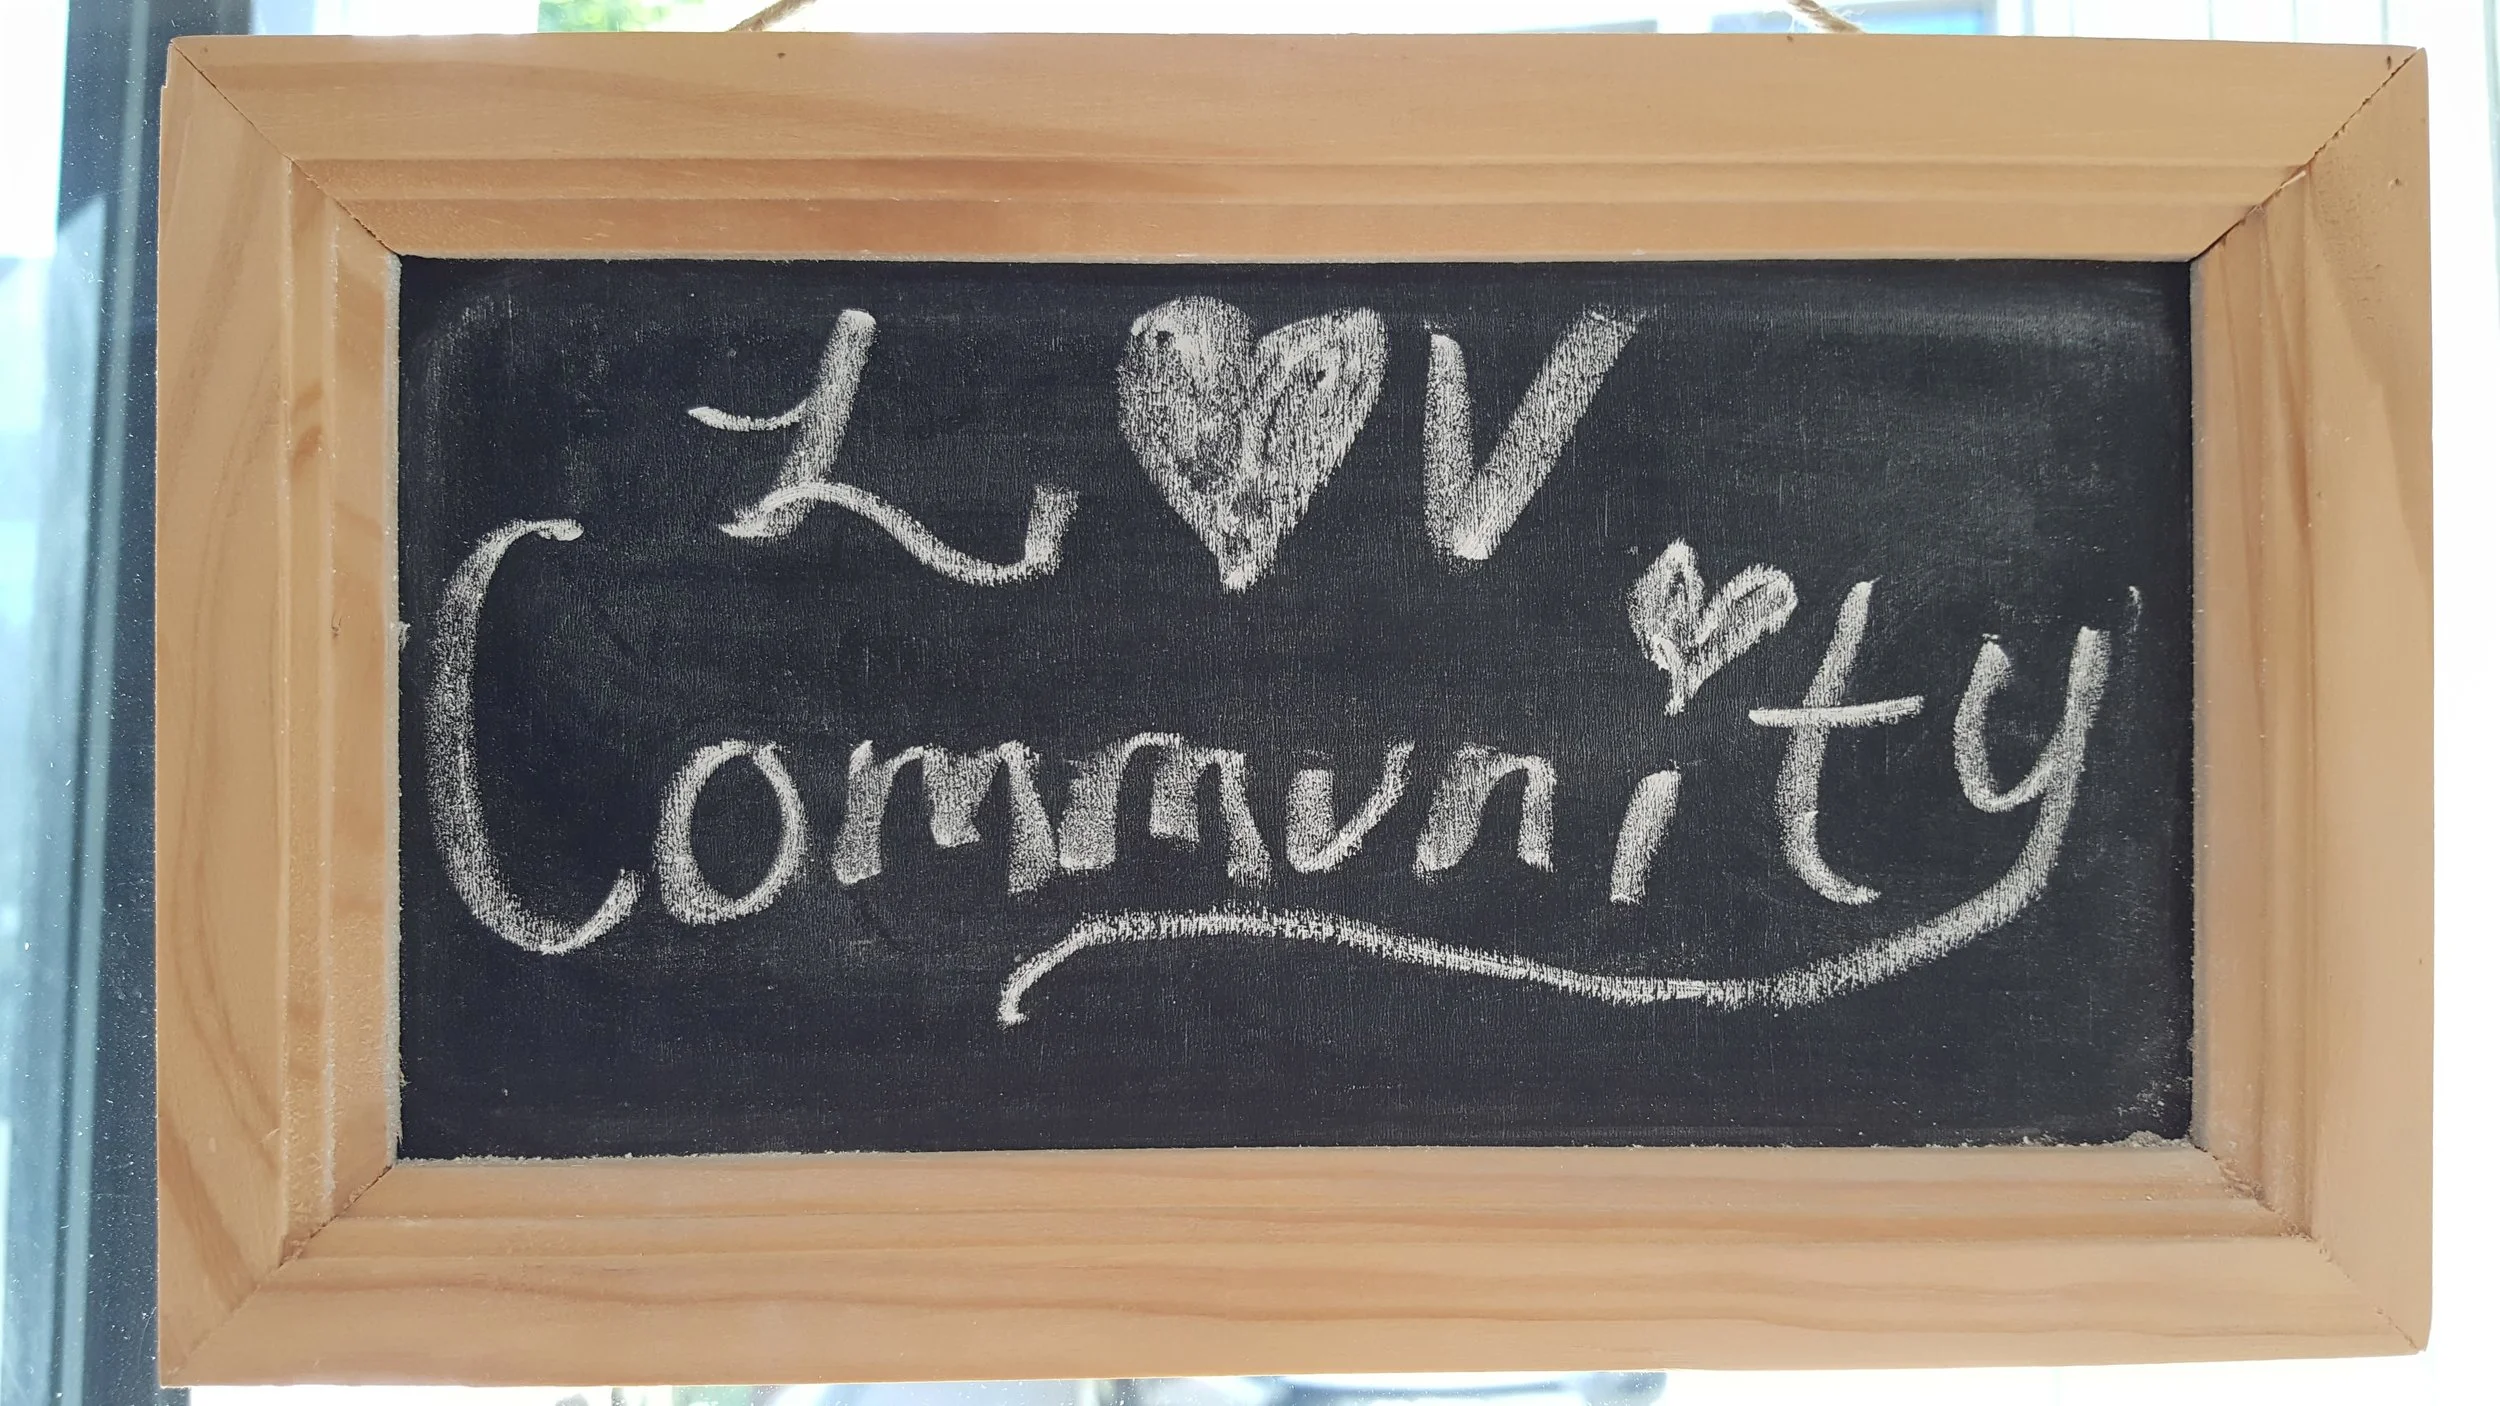 L♥V
Community